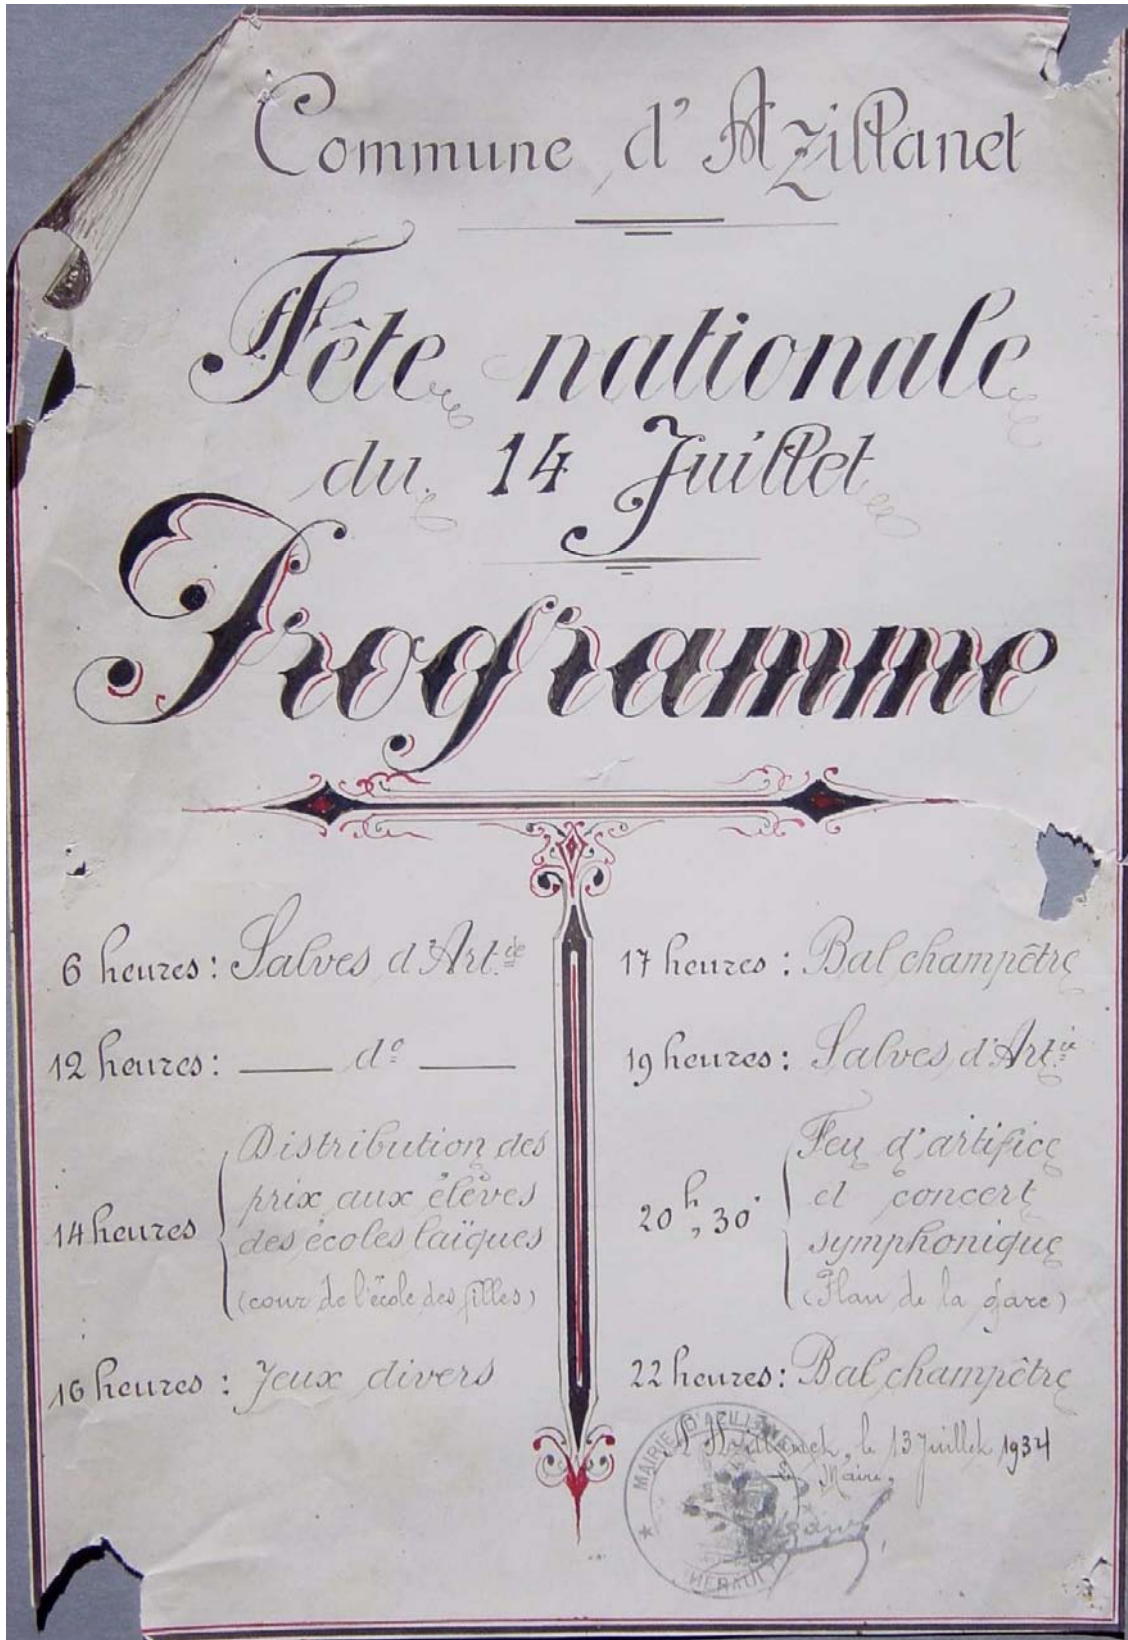 Commune d'Azillanet
Fête nationale
du 14 Juillet
Programme
6 heures : Salves d'Art.ie
12 heures : —— d° ——
14 heures
Distribution des
prix aux élèves
des écoles laïques
(cour de l'école des filles)
16 heures : Jeux divers
17 heures : Bal champêtre
19 heures : Salves d'Art.ie
20h,30'
Feu d'artifice
et concert
symphonique
(Plan de la gare)
22 heures : Bal champêtre
A Azillanet, le 13 Juillet 1934
Le Maire,
MAIRIE D'AZILLANET
HERAULT